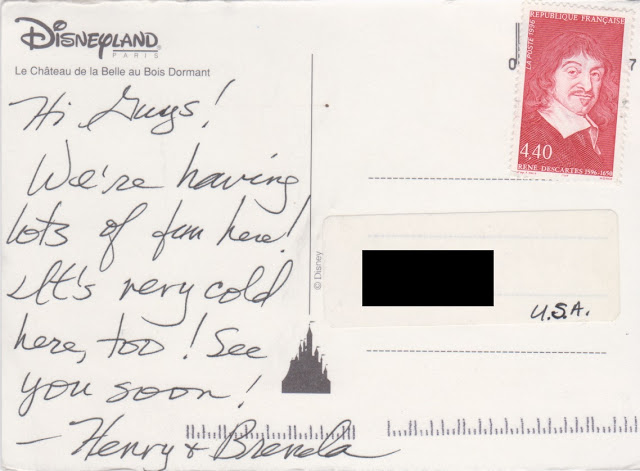 Disneyland
PARIS
Le Château de la Belle au Bois Dormant
Hi Guys!
We're having
lots of fun here!
It's very cold
here, too! See
you soon!
- Henry & Brenda
© Disney
0 7
RÉPUBLIQUE FRANÇAISE
LA POSTE 1996
4,40
RENÉ DESCARTES 1596-1650
U.S.A.